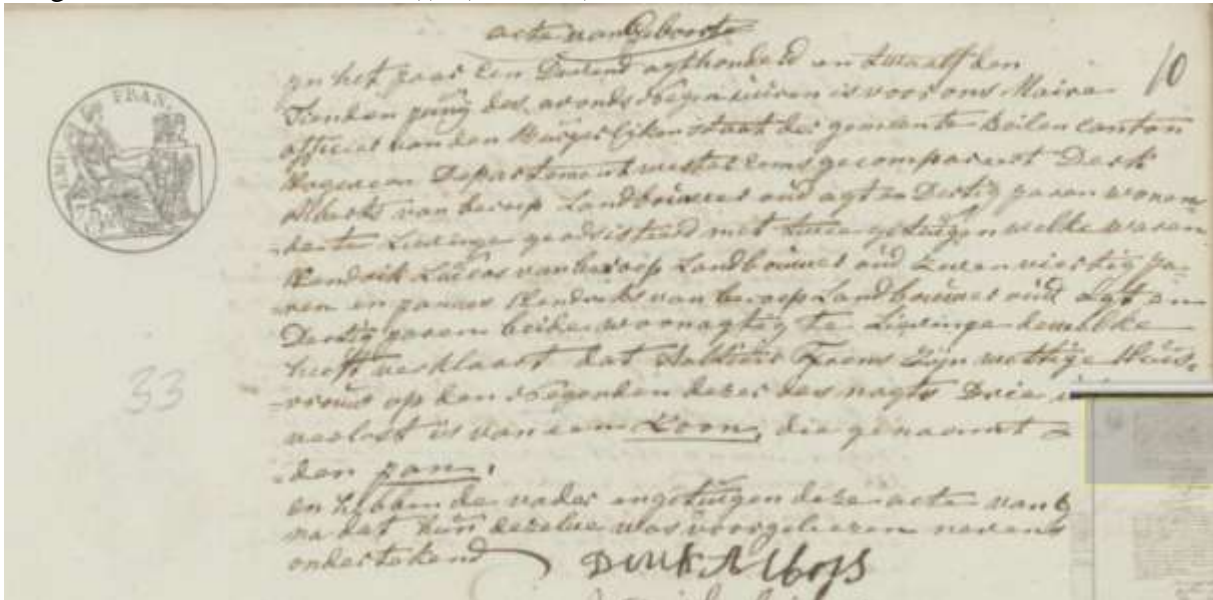 acte van Geboorte
10
EMP. FRAN.
yn het jaar Een Duizend agthonderd en twaalf den
Tienden juny des avonds Negen uiren is voor ons Maire
officier van den Burgerlijken staat der gemeente Beilen Canton
Departement wester Eems gecompareert Derk
Alberts van beroep Landbouwer oud agt en Dertig jaren wonen
-de te Lievinge geadsisteerd met twie getuigen welke waren
Hendrik Lucas van beroep Landbouwer oud en viertig Ja-
-ren en Hendriks van beroep Landbouwer oud agt en
Dertig jaren beide woonagtig te Lievinge dewelke
heeft verklaart dat zijn wettige Huis,
-vrouw op den Negenden dezer des nagts Drie
verlost is van een Zoon, die genaamt
-den jan,
en hebben de vader en getuigen deze acte van
na dat hun dezelve was voorgelezen nevens
ondertekend
33